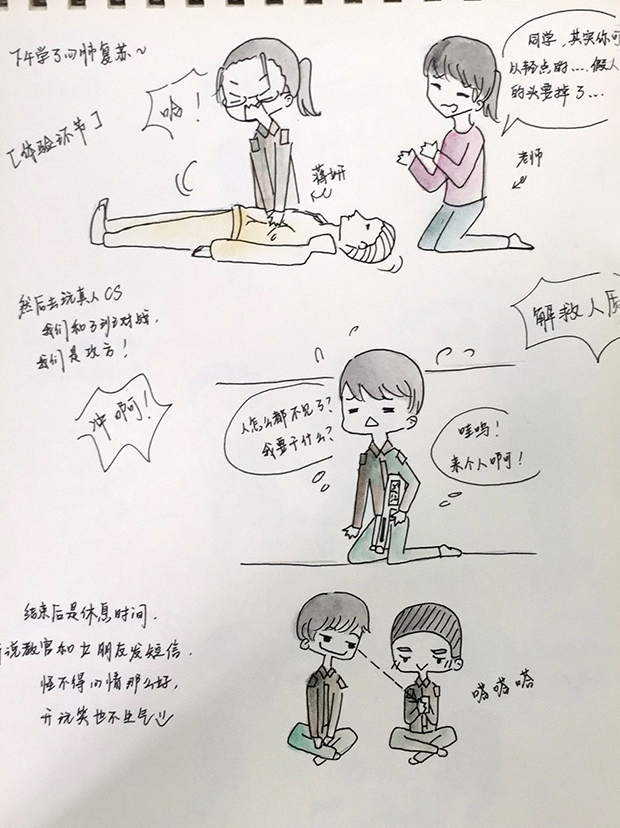 下午学了心肺复苏~
[体验环节]
哈！
蒋妍
同学，其实你可
以轻点的....假人
的头要掉了...
老师
然后去玩真人CS
我们和3班对战.
我们是攻方！
冲啊！
解救人
人怎么都不见了？
我要干什么？
哇呜！
来个人啊！
结束后是休息时间.
说教官和女朋友发短信.
怪不得心情那么好,
开玩笑也不生气
嗒嗒嗒